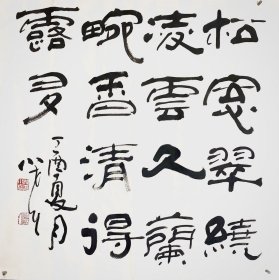 松窓翠繞
凌雲久蘭
畹香清得
露多
丁酉夏月